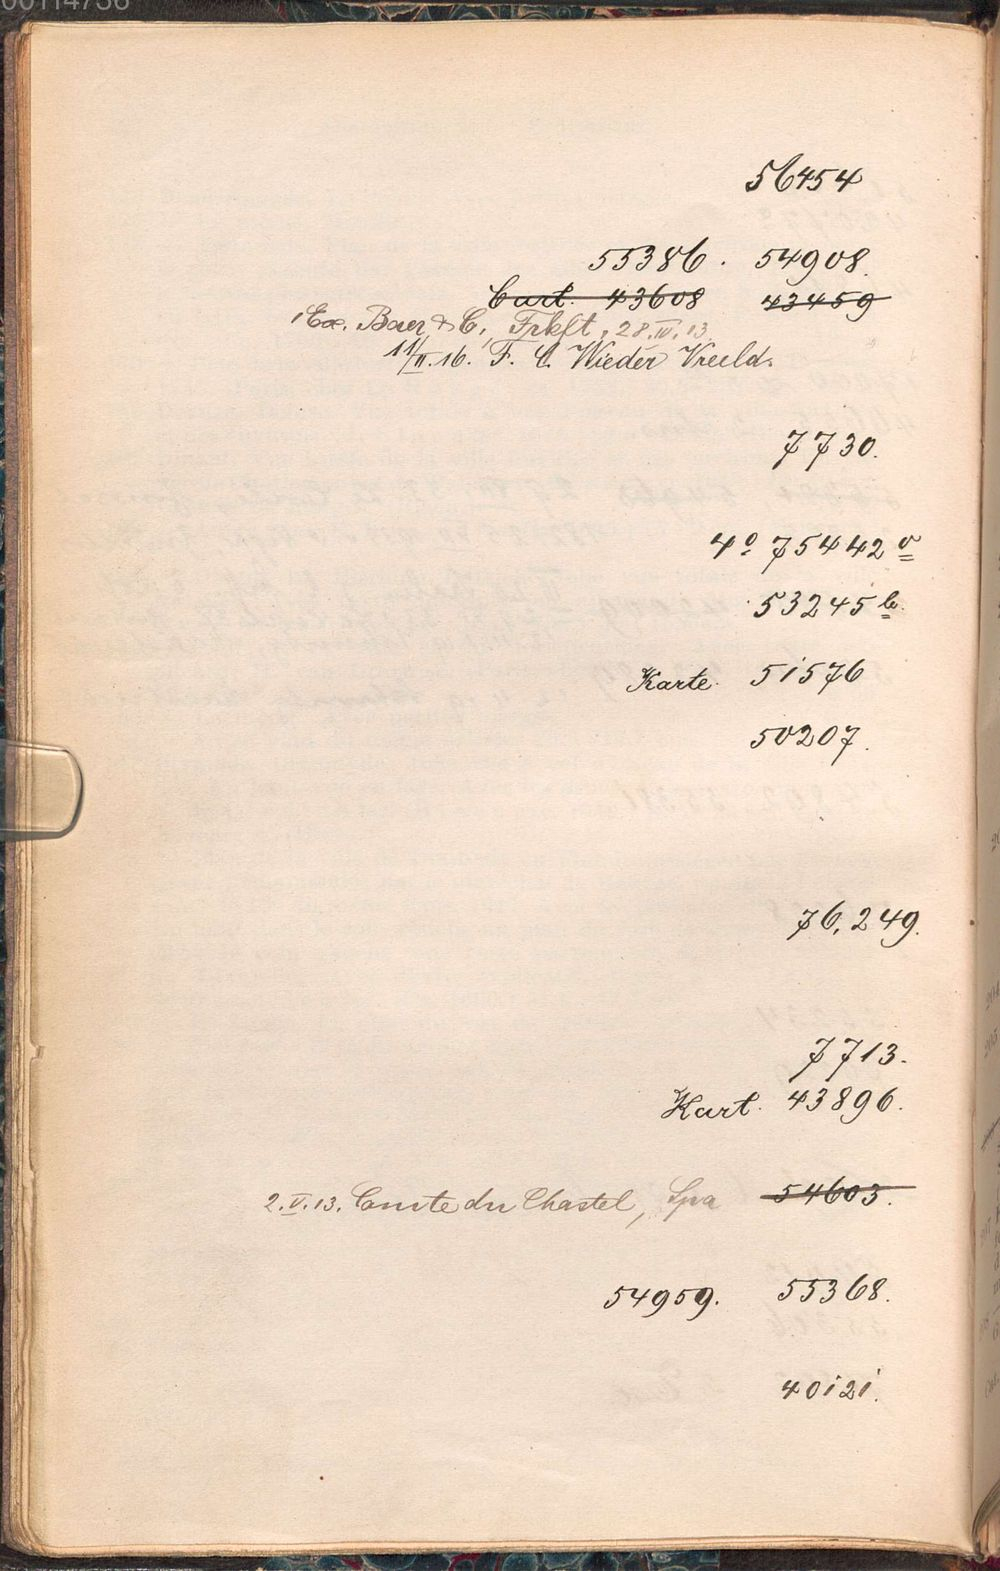 00114756
56454
55386. 54908.
Cart. 43608 43459
1 Ex. Baer & C, Frkft, 28.IV.13
11/II.16. F. C. Wieder Vreeld.
7730.
4º 75442 v
53245 b.
Karte. 51576
50207.
76,249.
7713.
Kart. 43896.
2.V.13. Comte du Chastel, Spa 54603.
54959. 55368.
40121.